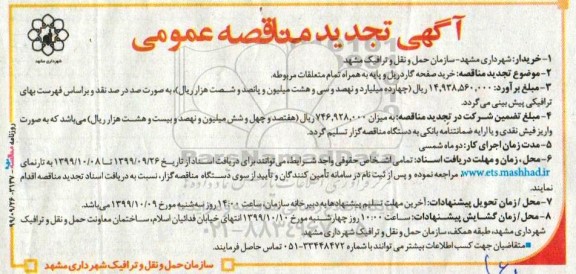 آگهی تجدید مناقصه عمومی
شهرداری مشهد
۱- خریدار: شهرداری مشهد- سازمان حمل و نقل و ترافیک مشهد
۲- موضوع تجدید مناقصه: خرید صفحه گاردریل و پایه به همراه تمام متعلقات مربوطه.
۳- مبلغ برآورد: ۱۴,۹۳۸,۵۶۰,۰۰۰ ریال (چهارده میلیارد و نهصد و سی و هشت میلیون و پانصد و شصت هزار ریال)، به صورت صد در صد نقد و براساس فهرست بهای
ترافیکی پیش بینی می‌گردد.
۴- مبلغ تضمین شرکت در تجدید مناقصه: به میزان ۷۴۶,۹۲۸,۰۰۰ ریال (هفتصد و چهل و شش میلیون و نهصد و بیست و هشت هزار ریال) می‌باشد که به صورت
واریز فیش نقدی و یا ارایه ضمانتنامه بانکی به دستگاه مناقصه گزار تسلیم گردد.
۵- مدت زمان اجرای کار: دو ماه شمسی
۶- محل، زمان و مهلت دریافت اسناد: تمامی اشخاص حقوقی واجد شرایط، می‌توانند برای دریافت اسناد از تاریخ ۱۳۹۹/۰۹/۲۶ تا ۱۳۹۹/۱۰/۰۸ به تارنمای
www.ets.mashhad.ir مراجعه نموده و پس از ثبت نام در سامانه تأمین کنندگان و تأیید از سوی دستگاه مناقصه گزار، نسبت به دریافت اسناد تجدید مناقصه اقدام
نمایند.
۷- محل/ زمان تحویل پیشنهادات: آخرین مهلت تسلیم پیشنهادها به دبیرخانه سازمان، ساعت ۱۴:۰۰ روز سه‌شنبه مورخ ۱۳۹۹/۱۰/۰۹ می‌باشد.
۸- محل/ زمان گشایش پیشنهادات: ساعت ۱۰:۰۰ روز چهارشنبه مورخ ۱۳۹۹/۱۰/۱۰ انتهای خیابان فدائیان اسلام، ساختمان معاونت حمل و نقل و ترافیک
شهرداری مشهد، طبقه همکف، سازمان حمل و نقل و ترافیک شهرداری مشهد
متقاضیان جهت کسب اطلاعات بیشتر می توانند با شماره ۳۳۴۴۸۴۷۲-۰۵۱ تماس حاصل فرمایند.
سازمان حمل و نقل و ترافیک شهرداری مشهد